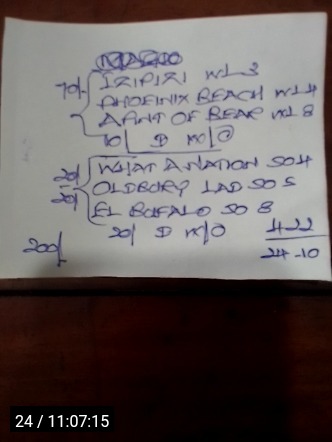 MARIO
70/- IZIPIZI W1-3
PHOENIX BEACH W1-4
APNT OF BEAR W1-8
10/ D M/O
20/ WHAT A NATION SO 4
20/ OLDBURY LAD SO 5
EL BUFALO SO 8
20/ D M/O 422
200/ 24-10
24 / 11:07:15